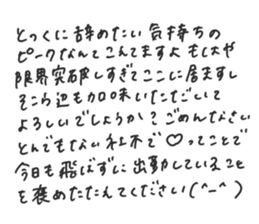 とっくに辞めたい気持ちの
ピークなんてこえてますよ もはや
限界突破しすぎてここに居ますし
そこら辺も加味いただいて
よろしいでしょうか？ごめんなさい
とんでもない社不で♡ってことで
今日も飛ばずに出勤していること
を褒めたたえてください(^-^)